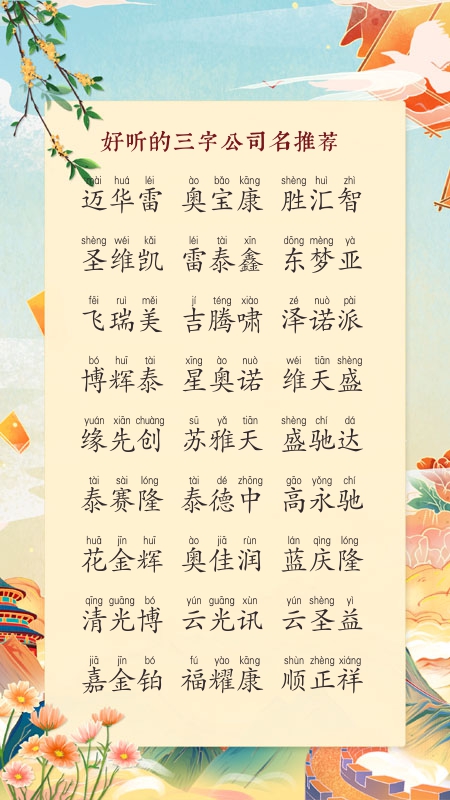 好听的三字公司名推荐
mài huá léi ào bǎo kāng shèng huì zhì
迈华雷 奥宝康 胜汇智
shèng wéi kǎi léi tài xīn dōng mèng yà
圣维凯 雷泰鑫 东梦亚
fēi ruì měi jí téng xiào zé nuò pài
飞瑞美 吉腾啸 泽诺派
bó huī tài xīng ào nuò wéi tiān shèng
博辉泰 星奥诺 维天盛
yuán xiān chuàng sū yǎ tiān shèng chí dá
缘先创 苏雅天 盛驰达
tài sài lóng tài dé zhōng gāo yǒng chí
泰赛隆 泰德中 高永驰
huā jīn huī ào jiā rùn lán qìng lóng
花金辉 奥佳润 蓝庆隆
qīng guāng bó yún guāng xùn yún shèng yì
清光博 云光讯 云圣益
jiā jīn bó fú yào kāng shùn zhèng xiáng
嘉金铂 福耀康 顺正祥